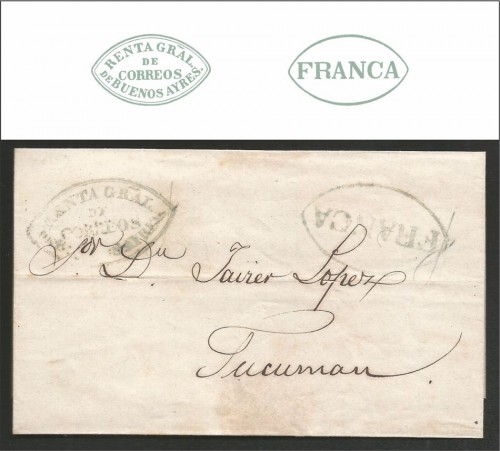 RENTA GRAL.
DE
CORREOS
DE BUENOS AYRES.
FRANCA
RENTA GRAL.
DE
CORREOS
FRANCA
Sor Dn Javier Lopez
Tucuman